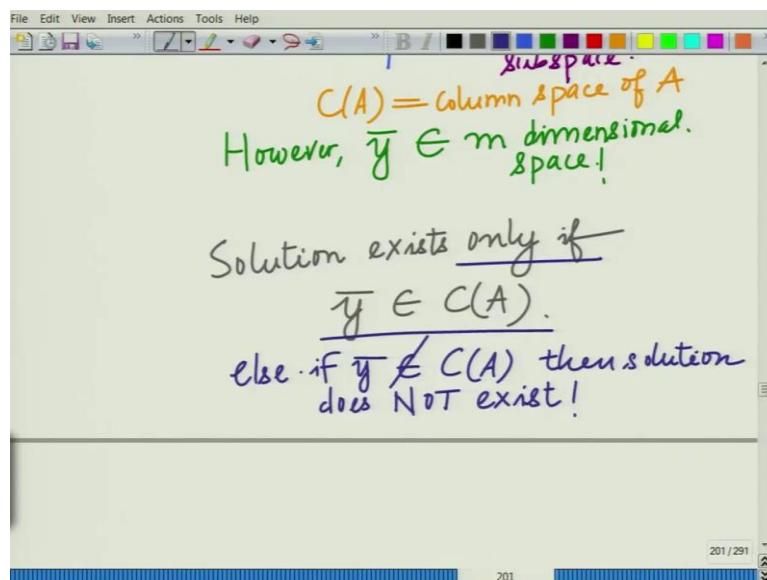 File Edit View Insert Actions Tools Help
B I
subspace.
C(A) = column space of A
However, y̅ ∈ m dimensional.
space!
Solution exists only if
y̅ ∈ C(A).
else if y̅ ∉ C(A) then solution
does NOT exist!
201 / 291
201